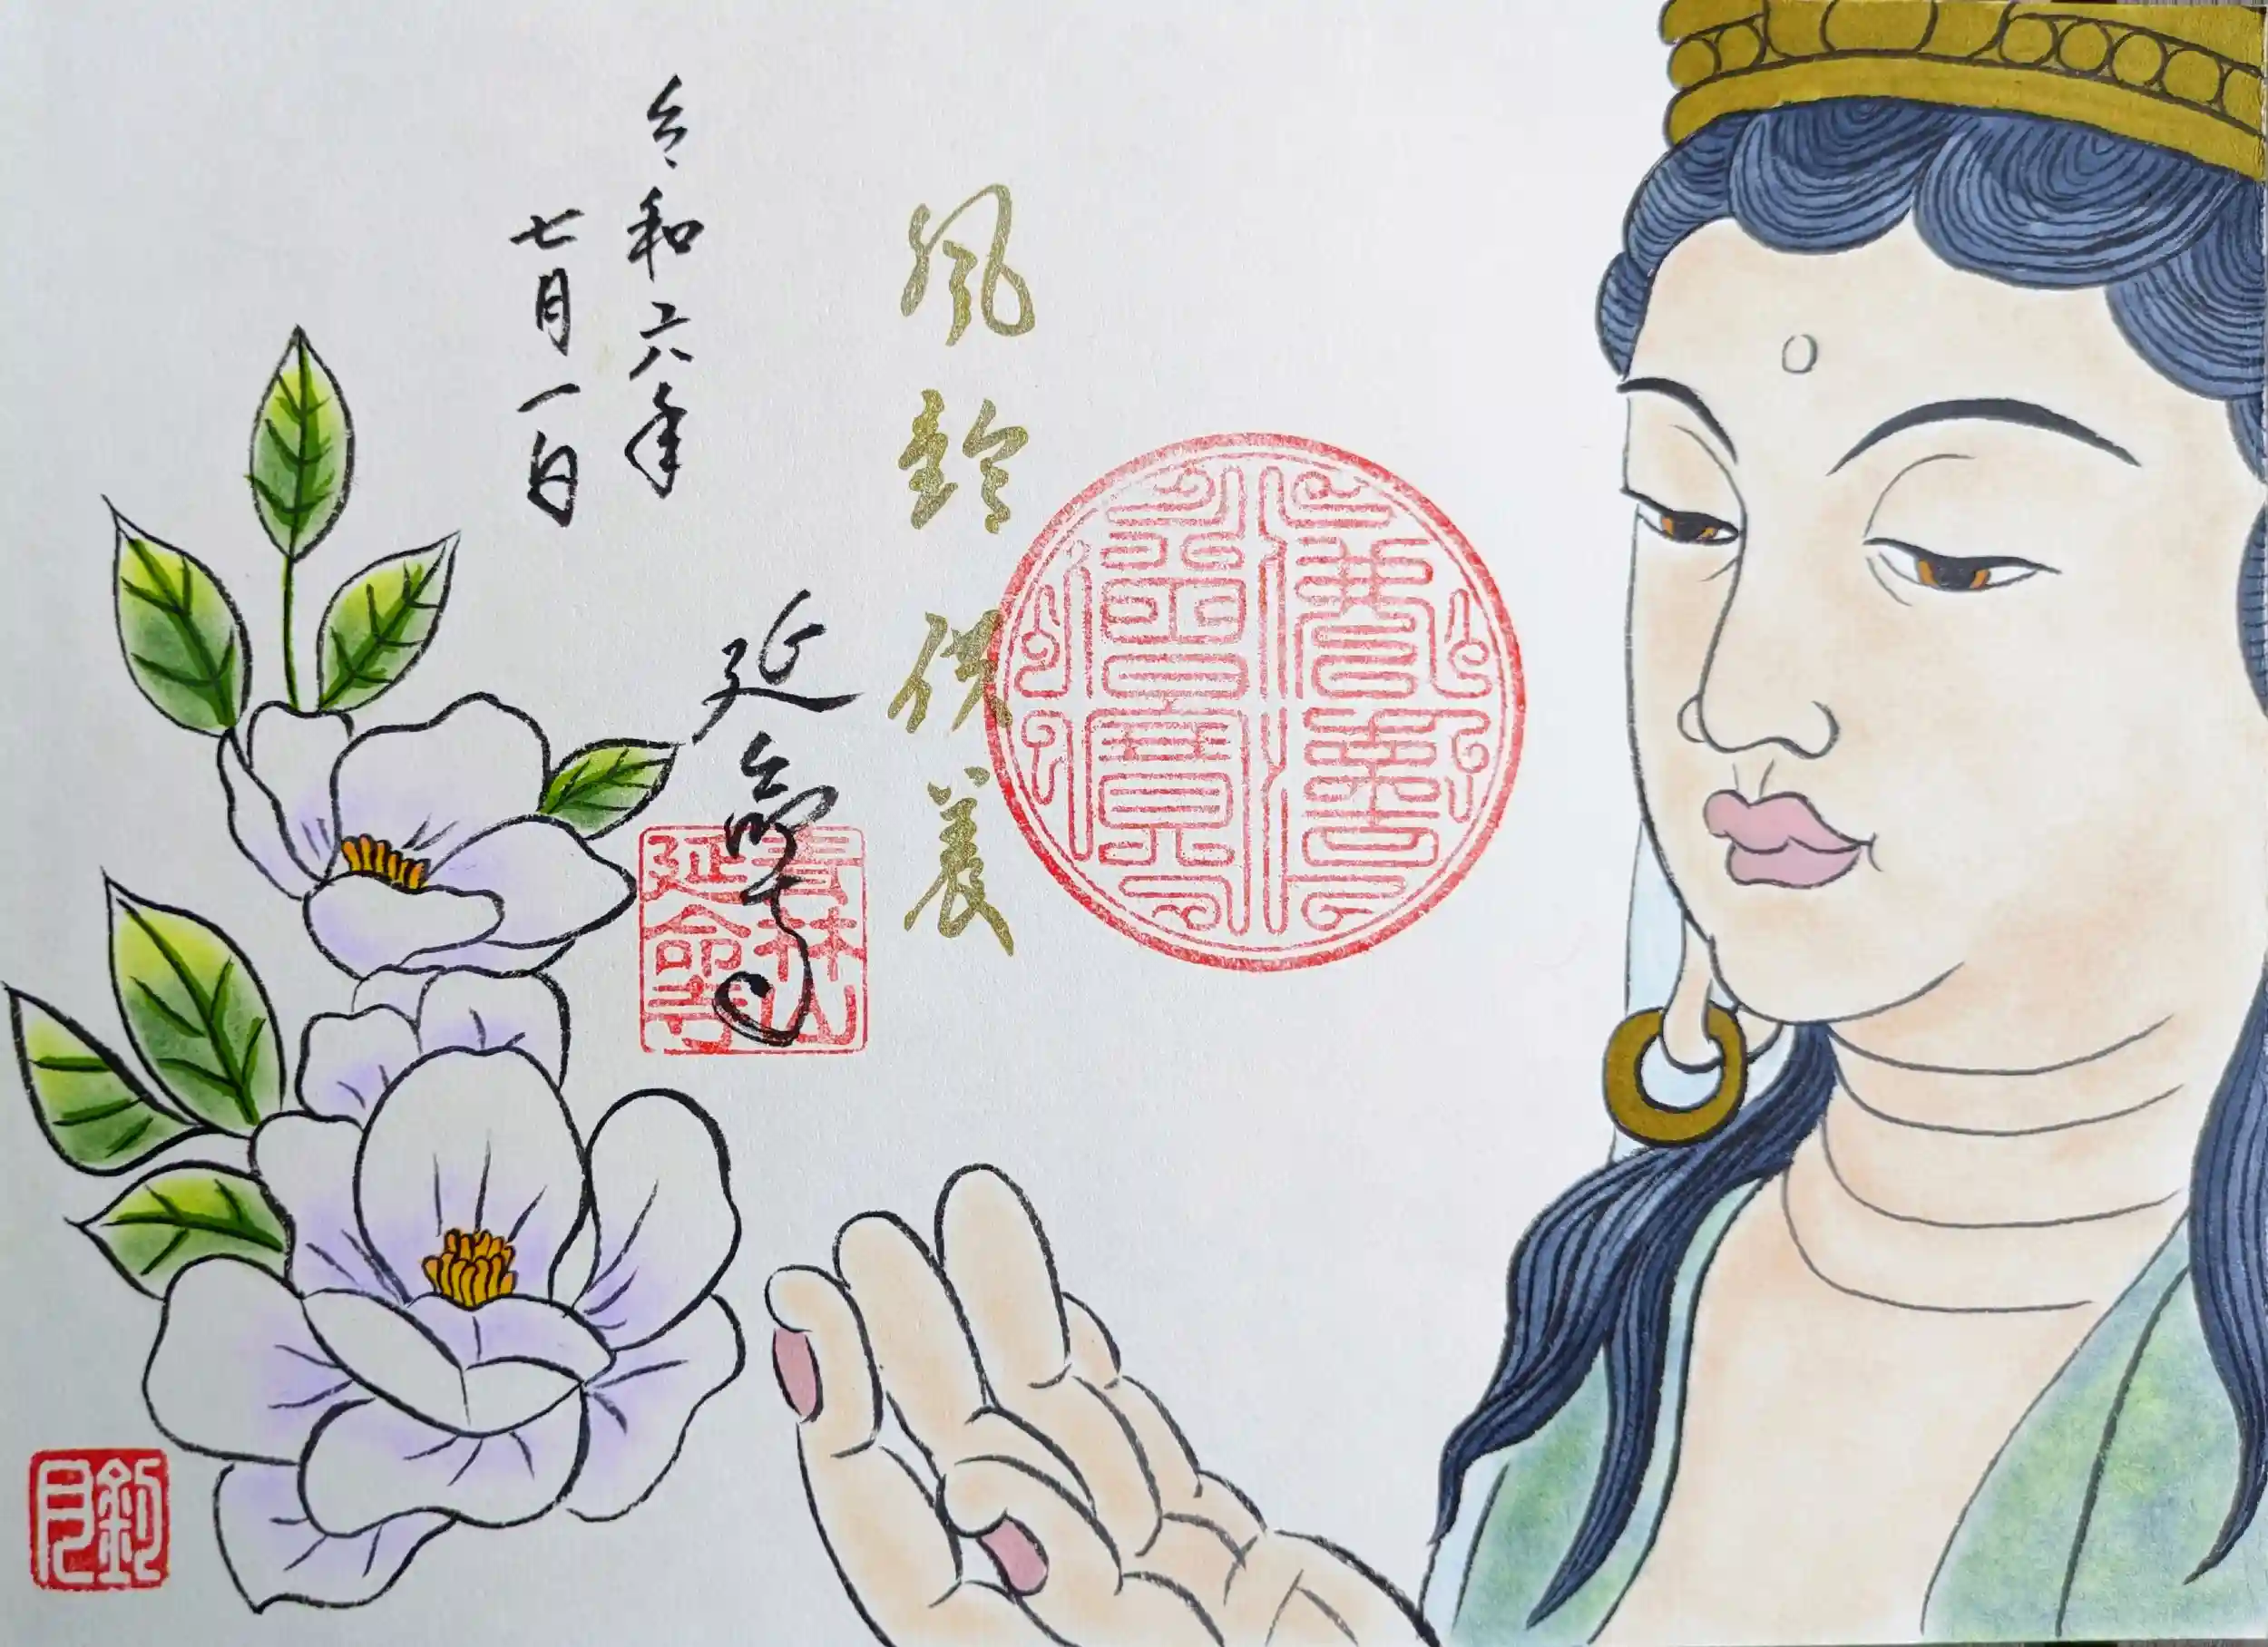 風鈴供養
延命寺
令和六年
七月一日
佛法僧寶
春林山
延命寺